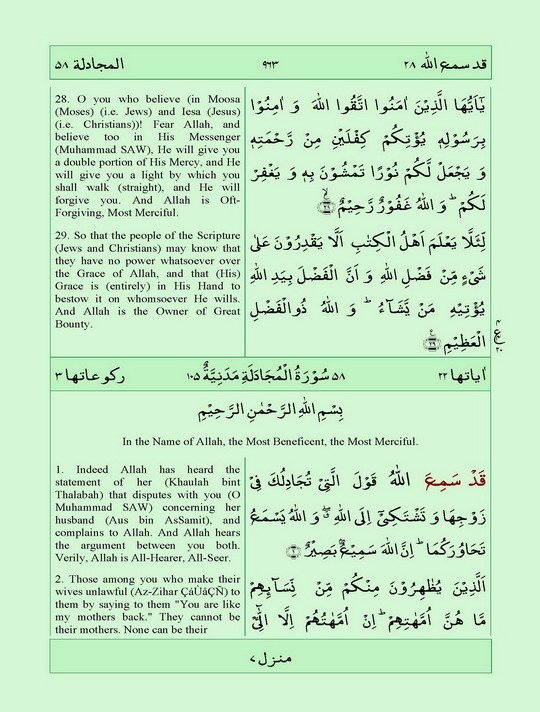 المجادلة ٥٨
٩٦٣
قد سمع الله ٢٨
28. O you who believe (in Moosa
(Moses) (i.e. Jews) and Iesa (Jesus)
(i.e. Christians))! Fear Allah, and
believe too in His Messenger
(Muhammad SAW), He will give you
a double portion of His Mercy, and He
will give you a light by which you
shall walk (straight), and He will
forgive you. And Allah is Oft-
Forgiving, Most Merciful.
يٰۤاَيُّهَا الَّذِيْنَ اٰمَنُوا اتَّقُوا اللّٰهَ وَ اٰمِنُوْا
بِرَسُوْلِهٖ يُؤْتِكُمْ كِفْلَيْنِ مِنْ رَّحْمَتِهٖ
وَ يَجْعَلْ لَّكُمْ نُوْرًا تَمْشُوْنَ بِهٖ وَ يَغْفِرْ
لَكُمْ ؕ وَ اللّٰهُ غَفُوْرٌ رَّحِيْمٌ ۙ‏﴿۲۸﴾
29. So that the people of the Scripture
(Jews and Christians) may know that
they have no power whatsoever over
the Grace of Allah, and that (His)
Grace is (entirely) in His Hand to
bestow it on whomsoever He wills.
And Allah is the Owner of Great
Bounty.
لِّئَلَّا يَعْلَمَ اَهْلُ الْكِتٰبِ اَلَّا يَقْدِرُوْنَ عَلٰى
شَيْءٍ مِّنْ فَضْلِ اللّٰهِ وَ اَنَّ الْفَضْلَ بِيَدِ اللّٰهِ
يُؤْتِيْهِ مَنْ يَّشَآءُ ؕ وَ اللّٰهُ ذُو الْفَضْلِ
الْعَظِيْمِ ﴿۲۹﴾
اٰياتها ٢٢
٥٨ سُوْرَةُ الْمُجَادَلَةِ مَدَنِيَّةٌ ١٠٥
ركوعاتها ٣
بِسْمِ اللّٰهِ الرَّحْمٰنِ الرَّحِيْمِ
In the Name of Allah, the Most Beneficent, the Most Merciful.
1. Indeed Allah has heard the
statement of her (Khaulah bint
Thalabah) that disputes with you (O
Muhammad SAW) concerning her
husband (Aus bin AsSamit), and
complains to Allah. And Allah hears
the argument between you both.
Verily, Allah is All-Hearer, All-Seer.
قَدْ سَمِعَ اللّٰهُ قَوْلَ الَّتِيْ تُجَادِلُكَ فِيْ
زَوْجِهَا وَ تَشْتَكِيْۤ اِلَى اللّٰهِ ۖ وَ اللّٰهُ يَسْمَعُ
تَحَاوُرَكُمَا ؕ اِنَّ اللّٰهَ سَمِيْعٌۢ بَصِيْرٌ ﴿۱﴾
2. Those among you who make their
wives unlawful (Az-Zihar ÇáÙåÇÑ) to
them by saying to them "You are like
my mothers back." They cannot be
their mothers. None can be their
اَلَّذِيْنَ يُظٰهِرُوْنَ مِنْكُمْ مِّنْ نِّسَآىِٕهِمْ
مَّا هُنَّ اُمَّهٰتِهِمْ ؕ اِنْ اُمَّهٰتُهُمْ اِلَّا الّٰٓـِٔيْ
منزل ٧